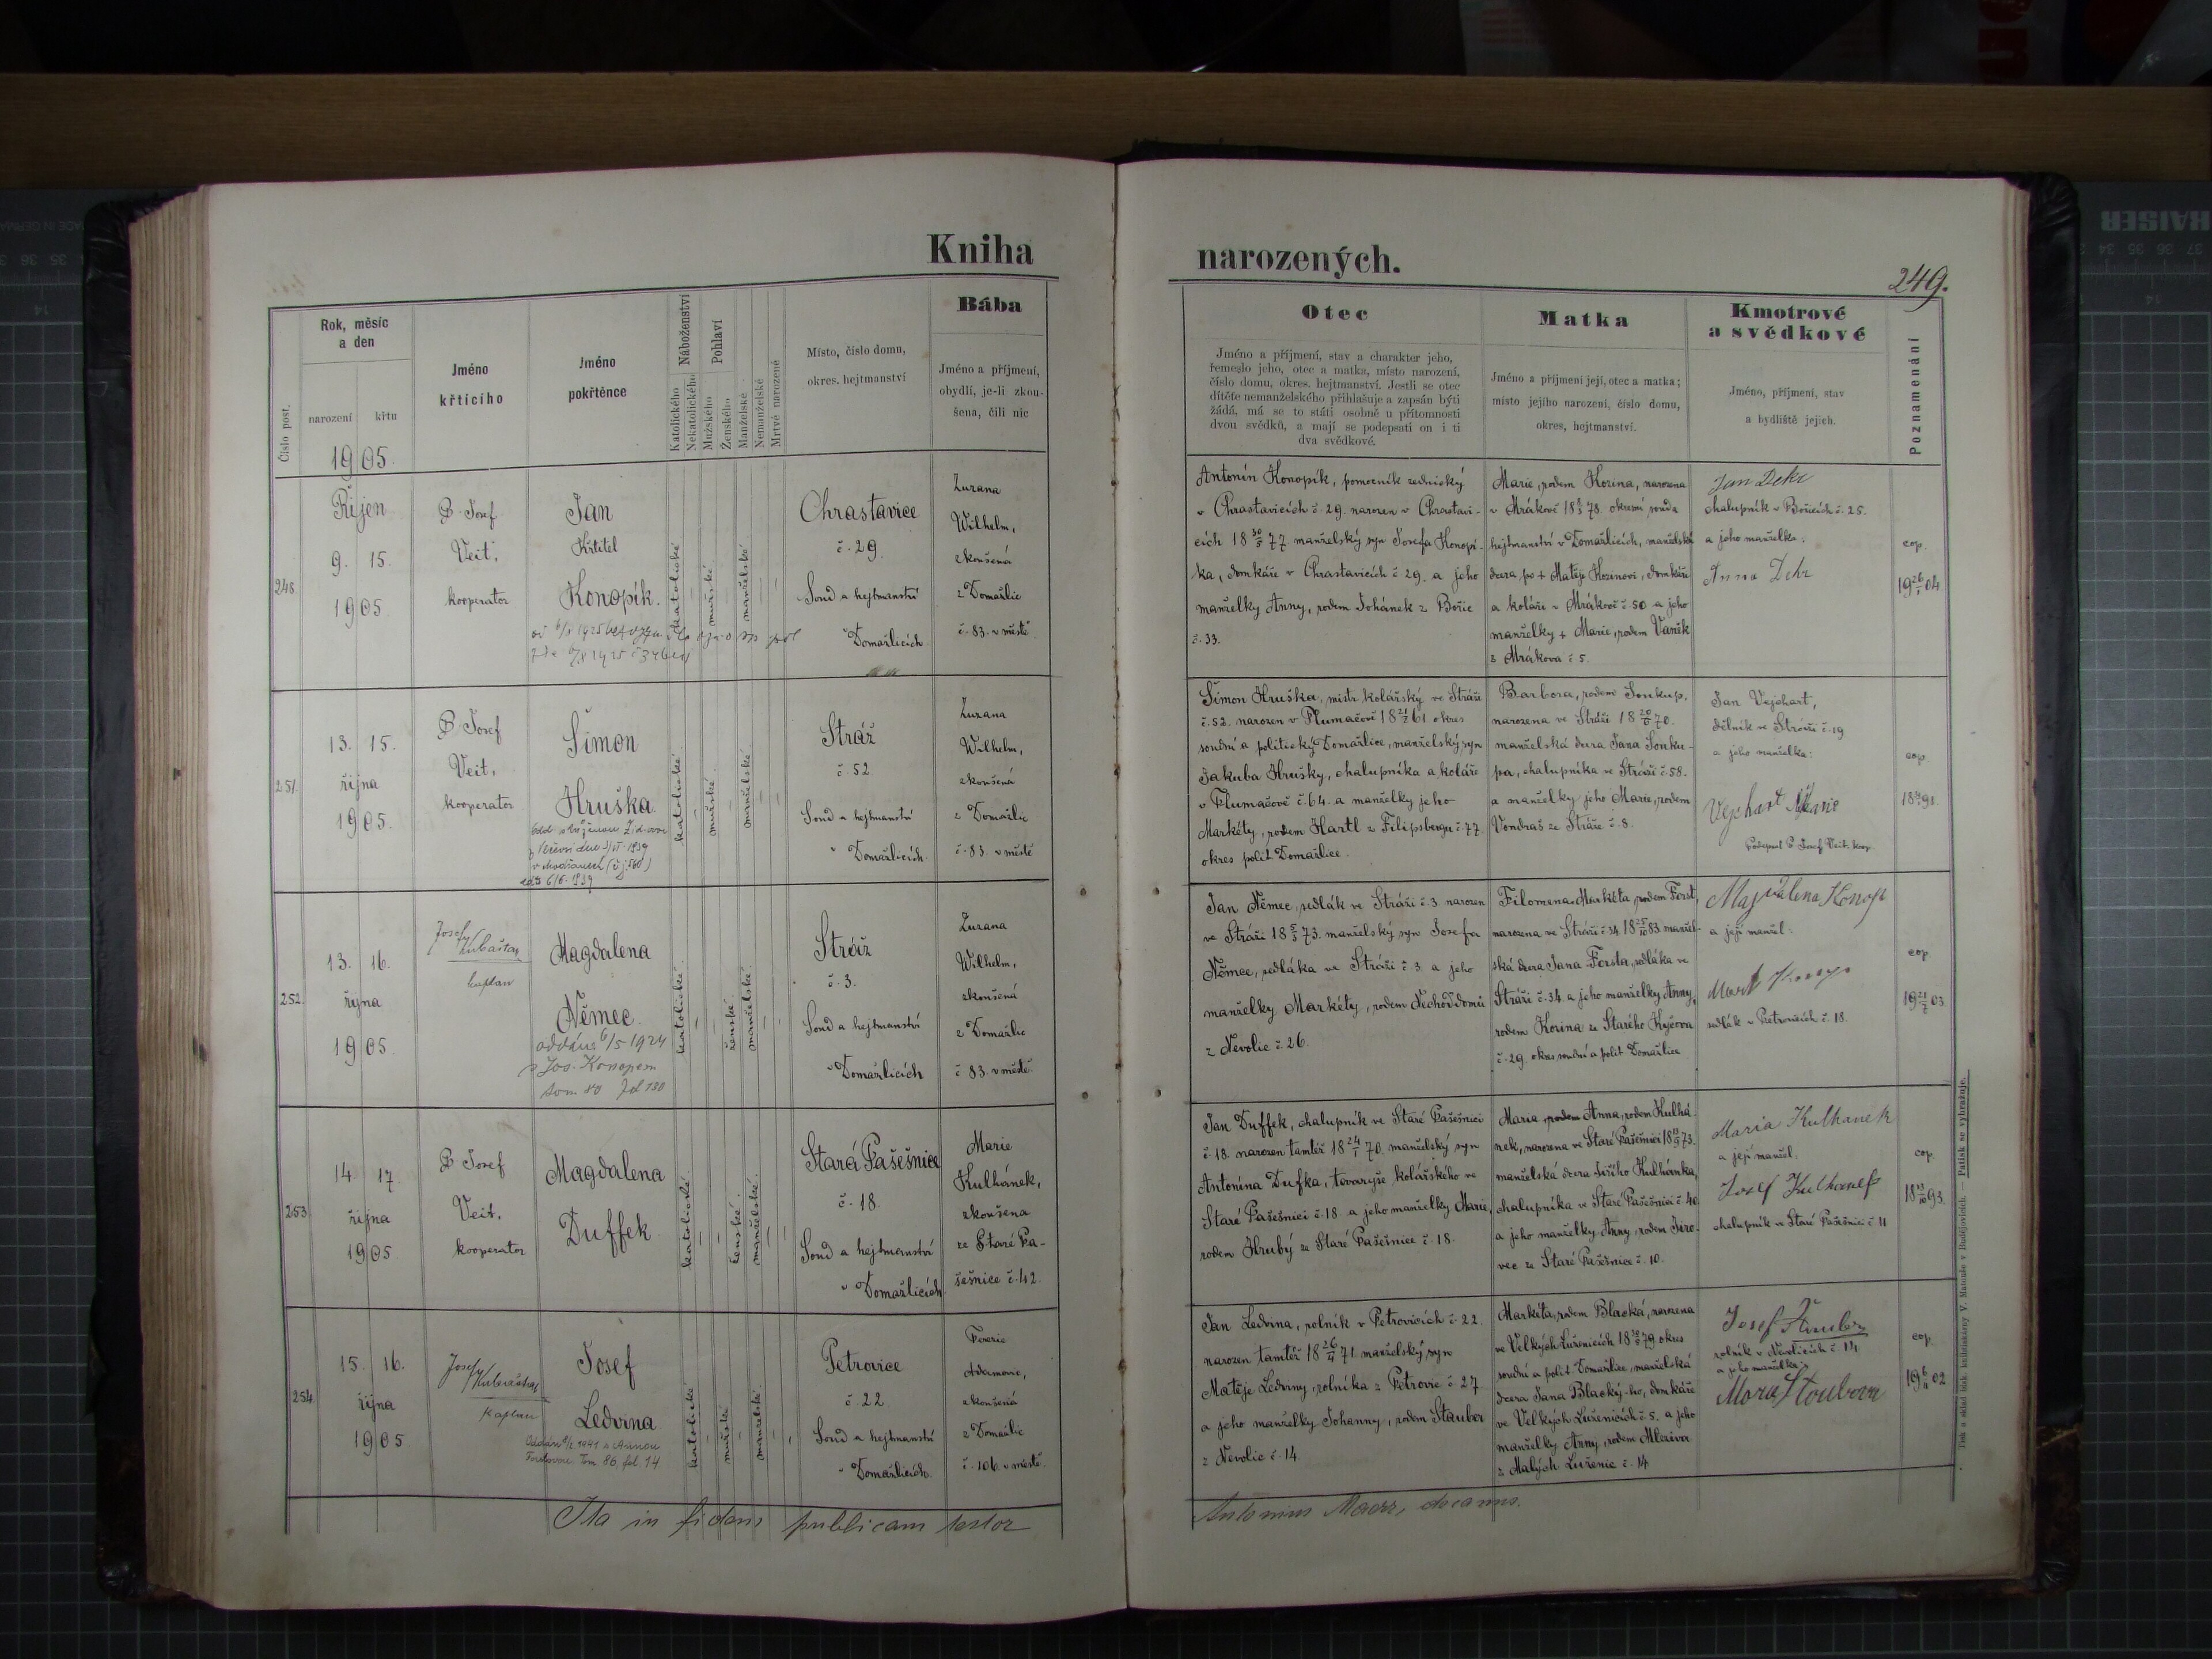 Kniha
narozených.
249.
Číslo post.
Rok, měsíc
a den
narození
křtu
1905.
Jméno
křticího
Jméno
pokřtěnce
Náboženství
Katolického
Nekatolického
Pohlaví
Mužského
Ženského
Manželské
Nemanželské
Mrtvě narozené
Místo, číslo domu,
okres. hejtmanství
Bába
Jméno a příjmení,
obydlí, je-li zkou-
šena, čili nic
Otec
Jméno a příjmení, stav a charakter jeho,
řemeslo jeho, otec a matka, místo narození,
číslo domu, okres. hejtmanství. Jestli se otec
dítěte nemanželského přihlašuje a zapsán býti
žádá, má se to státi osobně u přítomnosti
dvou svědků, a mají se podepsati on i ti
dva svědkové.
Matka
Jméno a příjmení její, otec a matka;
místo jejího narození, číslo domu,
okres, hejtmanství.
Kmotrové
a svědkové
Jméno, příjmení, stav
a bydliště jejich.
Poznamenání
248.
Říjen
9. 15.
1905
P. Josef
Veit,
kooperator
Jan
Křtitel
Konopík.
katolické
mužské
manželské
Chrastavice
č. 29.
Soud a hejtmanství
v Domažlicích
Zuzana
Wilhelm,
zkoušená
z Domažlic
č. 83. v městě
Antonín Konopík, pomocník zednický
v Chrastavicích č. 29. narozen v Chrastavi-
cích 18 30/5 77 manželský syn Josefa Konopí-
ka, domkáře v Chrastavicích č. 29. a jeho
manželky Anny, rodem Johánek z Bořic
č. 33.
Marie, rodem Kozina, narozena
v Mrákově 78. okresní soud a
hejtmanství v Domažlicích, manželská
dcera po + Matěji Kozinovi, domkáři
a koláři v Mrákově č. 50 a jeho
manželky + Marie, rodem Vaněk
z Mrákova č. 5.
Jan Dehr
chalupník v Bořicích č. 25.
a jeho manželka:
Anna Dehr
cop.
19 26/1 04.
251.
13. 15.
října
1905.
P. Josef
Veit,
kooperator
Šimon
Hruška
v Modřanech
6/6. 1939
katolické
mužské
manželské
Stráž
č. 52.
Soud a hejtmanství
v Domažlicích.
Zuzana
Wilhelm,
zkoušená
z Domažlic
č. 83. v městě
Šimon Hruška, mistr kolářský ve Stráži
č. 52. narozen v Tlumačově 61 okres
soudní a politický Domažlice, manželský syn
Jakuba Hrušky, chalupníka a koláře
v Tlumačově č. 64. a manželky jeho
Markéty, rodem Hartl z Filipsbergu č. 77.
okres polit. Domažlice.
Barbora, rodem Soukup,
narozena ve Stráži 70.
manželská dcera Jana Souku-
pa, chalupníka ve Stráži č. 58.
a manželky jeho Marie, rodem
Vondraš ze Stráže č. 8.
Jan Vejchart,
dělník ve Stráži č. 19
a jeho manželka:
Vejchart Marie
Podepsal P. Josef Veit, koop.
cop.
252.
13. 16.
října
1905.
Josef
kaplan
Magdalena
Němec
oddána 6/5 1924
s Jos. Konopem
tom 80 fol 130
katolické
ženské
manželské
Stráž
č. 3.
Soud a hejtmanství
v Domažlicích
Zuzana
Wilhelm,
zkoušená
z Domažlic
č 83. v městě.
Jan Němec, sedlák ve Stráži č. 3 narozen
ve Stráži 18 5/5 73. manželský syn Josefa
Němec, sedláka ve Stráži č. 3. a jeho
manželky Markéty, rodem Nechodomů
z Nevolic č. 26.
Filomena Markéta, rodem Forst,
narozena ve Stráži č. 34 18 25/10 83. manžel-
ská dcera Jana Forsta, sedláka ve
Stráži č. 34. a jeho manželky Anny,
rodem Kozina ze Starého Kyčova
č. 29. okres soudní a polit. Domažlice
Magdalena Konop
a její manžel:
sedlák v Petrovicích č. 18.
cop.
19 21/7 03
253.
14 17.
října
1905
P. Josef
Veit,
kooperator
Magdalena
Duffek
katolické
ženské
manželské
Stará Pašešnice
č. 18.
Soud a hejtmanství
v Domažlicích
Marie
Kulhánek,
zkoušena
ze Staré Pa-
šešnice č. 42.
Jan Duffek, chalupník ve Staré Pašešnici
č. 18. narozen tamtéž 18 24/1 70. manželský syn
Antonína Dufka, tovaryše kolářského ve
Staré Pašešnici č. 18 a jeho manželky Marie,
rodem Hrubý ze Staré Pašešnice č. 18.
Maria, rodem Anna, rodem Kulhá-
nek, narozena ve Staré Pašešnici 73.
manželská dcera Jiřího Kulhánka,
chalupníka ve Staré Pašešnici č. 40
a jeho manželky Anny, rodem Jiro-
vec ze Staré Pašešnice č. 10.
Maria Kulhanek
a její manžel.
Josef Kulhanek
chalupník ve Staré Pašešnici č 11
cop.
254.
15. 16.
října
1905
Josef
Kaplan
Josef
Ledvina
Tom. 86, fol. 14
katolické
mužské
manželské
Petrovice
č. 22.
Soud a hejtmanství
v Domažlicích.
zkoušená
z Domažlic
č. 106. v městě.
Jan Ledvina, rolník v Petrovicích č. 22.
narozen tamtéž 18 26/4 71. manželský syn
Matěje Ledviny, rolníka z Petrovic č. 27
a jeho manželky Johanny, rodem Stauber
z Nevolic č. 14.
Markéta, rodem Blacká, narozena
ve Velkých Luženicích 79 okres
soudní a polit. Domažlice, manželská
dcera Jana Blacký-ho, domkáře
ve Velkých Luženicích č. 5. a jeho
manželky Anny, rodem Mleziva
z Malých Luženic č. 14
Josef Štauber
rolník v Nevolicích č. 14
a jeho manželka
cop.
19 6/11 02
Ita in fidem publicam testor
Antonius decanus.
Tisk a sklad kněhtiskárny V. Matouše v Budějovicích. — Patisk se vyhražuje.
KAISER